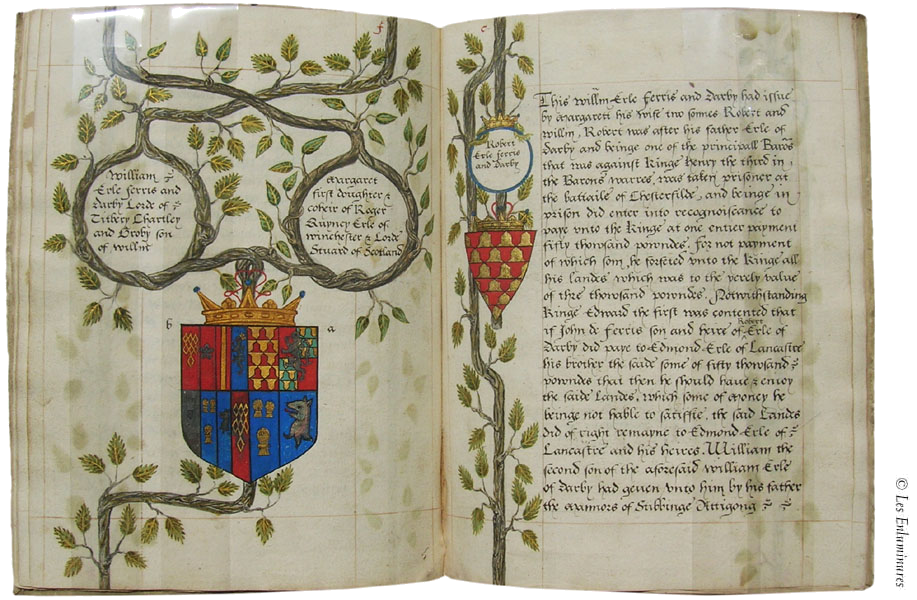 f
William
Erle ferris and
Darby Lorde of
Titbery Chartley
and Groby son
of willm
Margaret
first doughter &
coheir of Roger
Quyncy Erle of
winchester & Lorde
Stuard of Scotland
b
a
c
Robert
Erle ferris
and Darby
This willm Erle Ferris and Darby had issue
by Margaret his wife two sonnes Robert and
willm, Robert was after his father Erle of
Darby and beinge one of the principall Barōs
that was against Kinge henry the third in
the Barons warres, was taken prisoner at
the battaile of Chesterfilde, and beinge in
prison did enter into recognoiscance to
paye vnto the Kinge at one entier payment
fifty thowsand powndes. for not payment
of which som, he forfeted vnto the Kinge all
his landes which was to the yerely value
of thre thowsand powndes. Notwithstanding
Kinge Edward the first was contented that
if John de Ferris son and heire of Robert Erle of
Darby did paye to Edmond Erle of Lancastre
his brother the saide some of fifty thowsand
powndes that then he should have & enioy
the saide Landes. which some of money he
beinge not hable to satisfie, the said Landes
did of right remayne to Edmond Erle of
Lancastre and his heires. William the
second son of the aforesaid william Erle
of Darby had geven vnto him by his father
the mannors of
© Les Enluminures